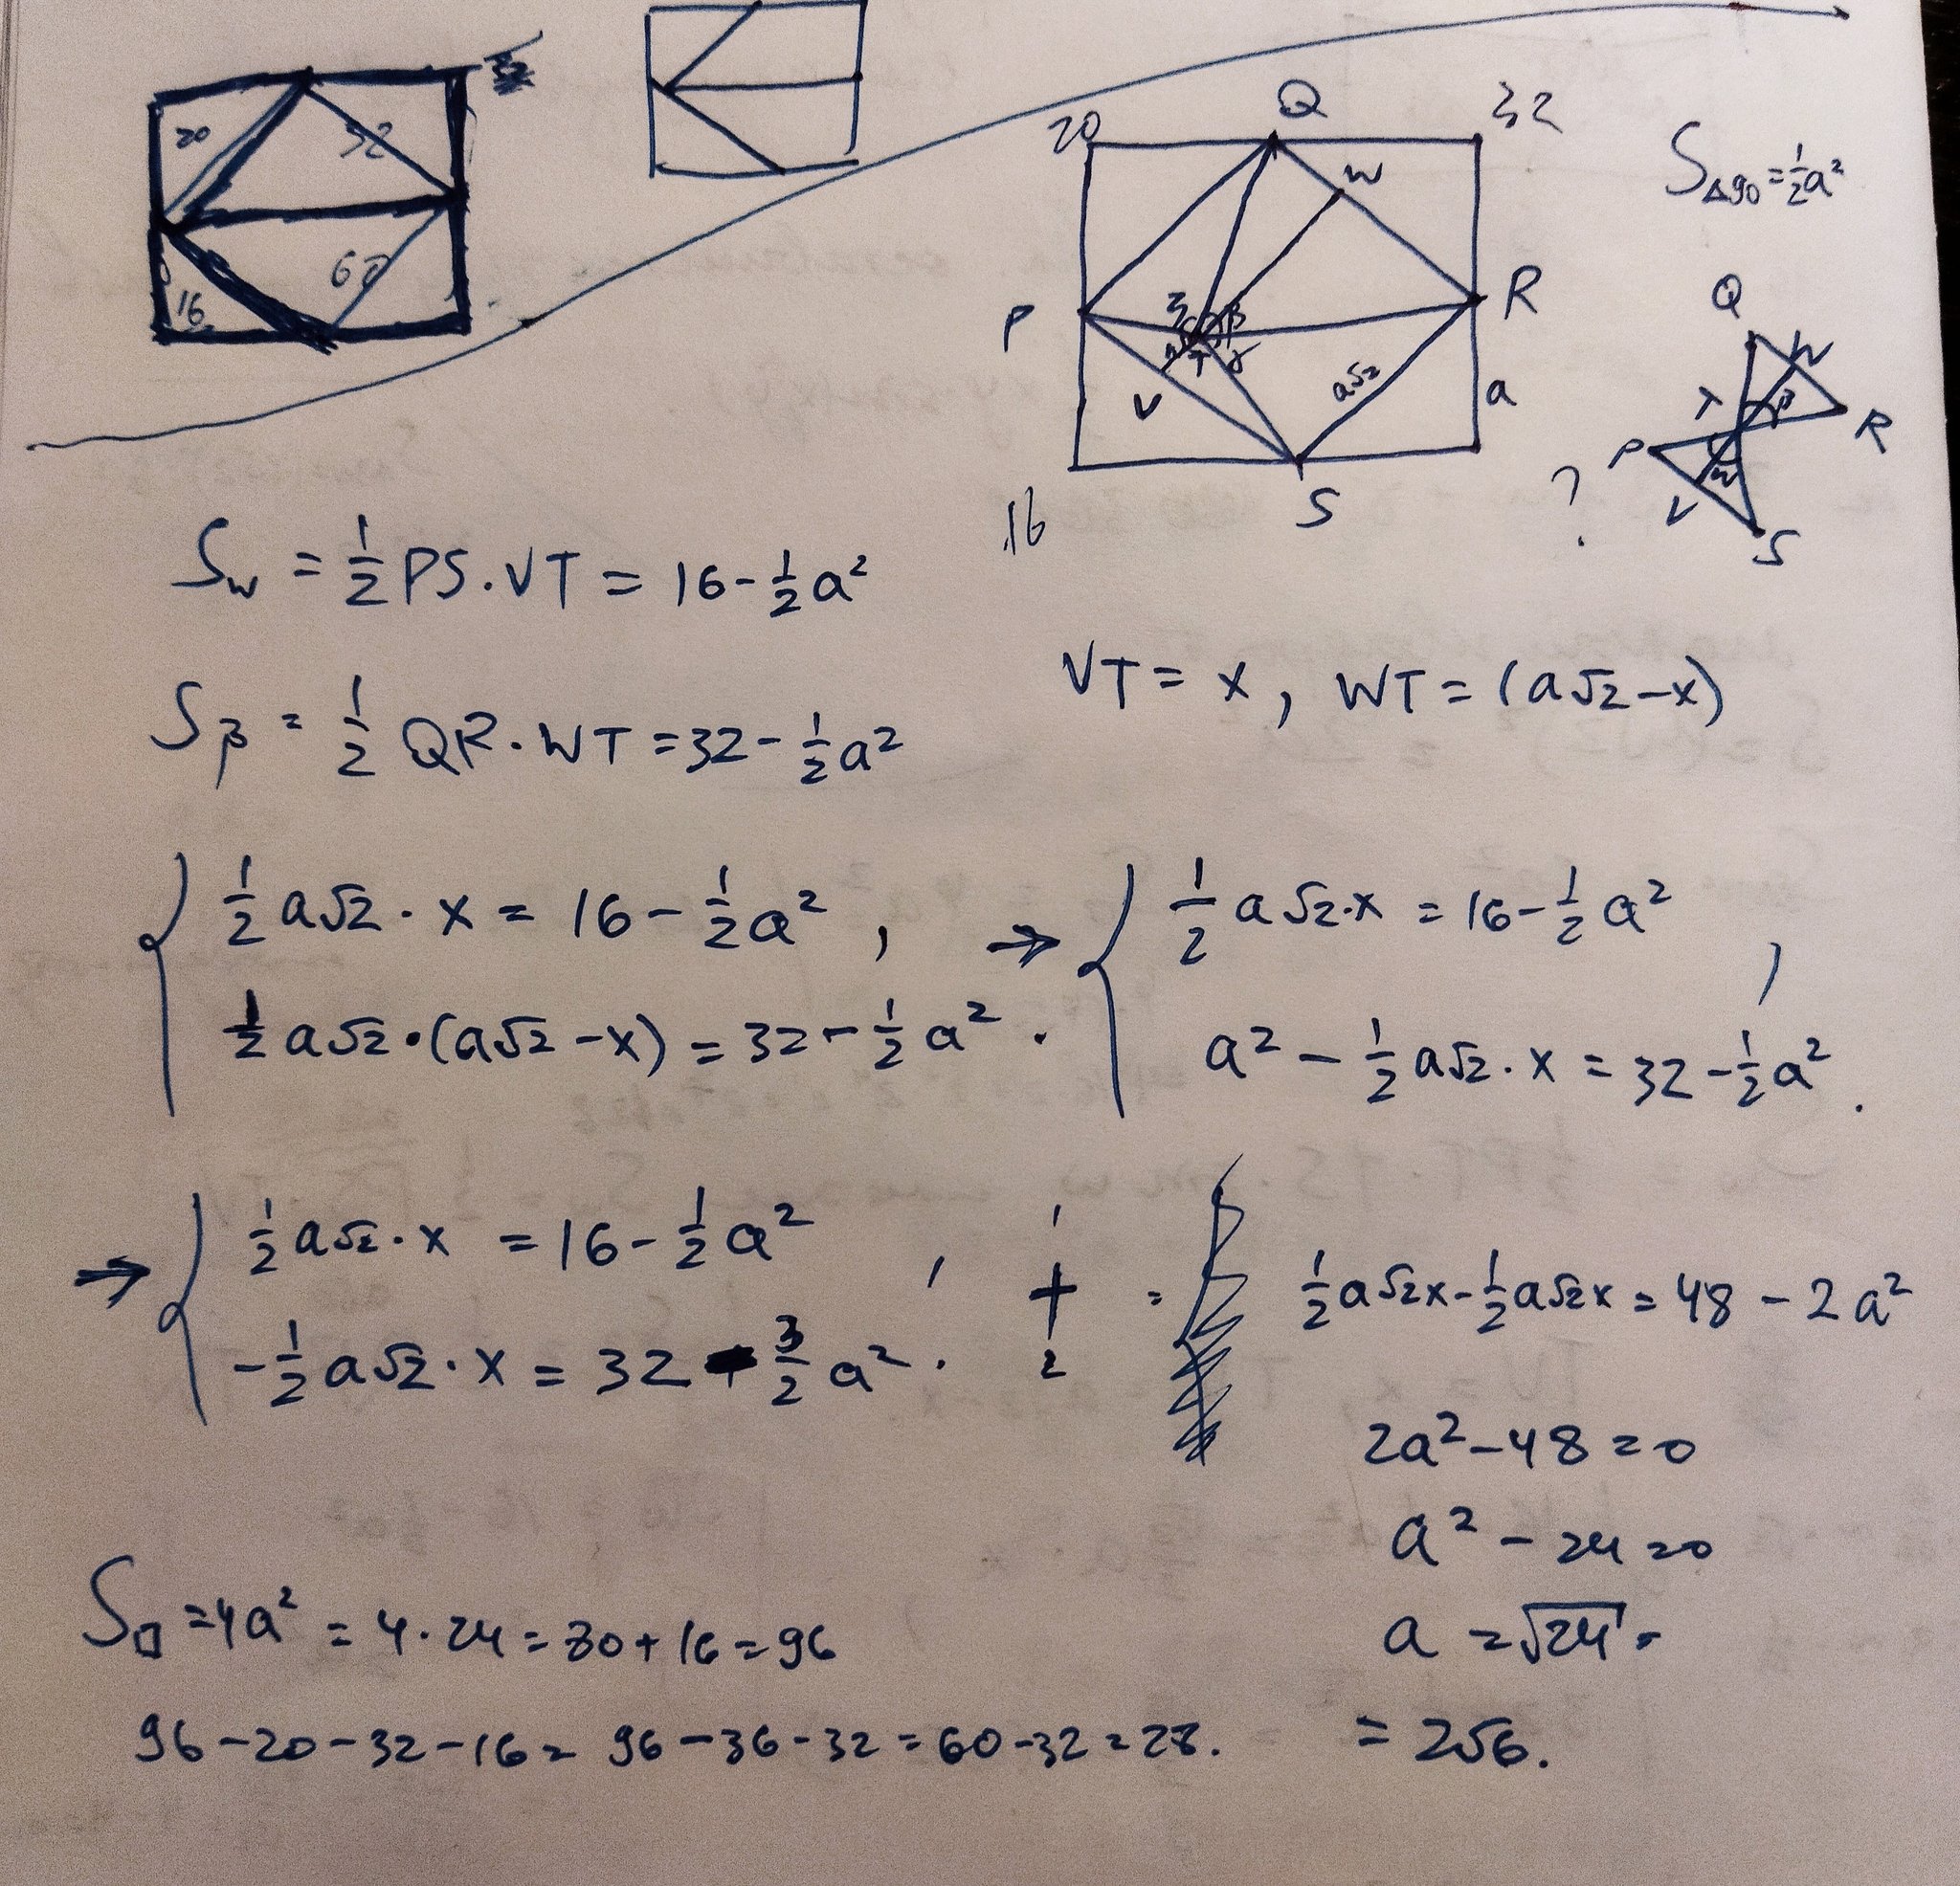 20
32
60
16
20
Q
32
S△90 = ½a²
W
P
R
3
β
T
γ
V
a√2
a
16
S
?
Q
W
T
β
R
P
w
V
S
Sw = ½ PS · VT = 16 - ½a²
VT = x, WT = (a√2 - x)
Sβ = ½ QR · WT = 32 - ½a²
{ ½a√2 · x = 16 - ½a² , → { ½a√2·x = 16 - ½a² ,
½a√2 · (a√2 - x) = 32 - ½a² . a² - ½a√2 · x = 32 - ½a² .
→ { ½a√2 · x = 16 - ½a² , 1 + 2 = ½a√2x - ½a√2x = 48 - 2a²
-½a√2 · x = 32 - 3/2 a² .
2a² - 48 = 0
a² - 24 = 0
a = √24 =
= 2√6.
S□ = 4a² = 4 · 24 = 80 + 16 = 96
96 - 20 - 32 - 16 = 96 - 36 - 32 = 60 - 32 = 28.